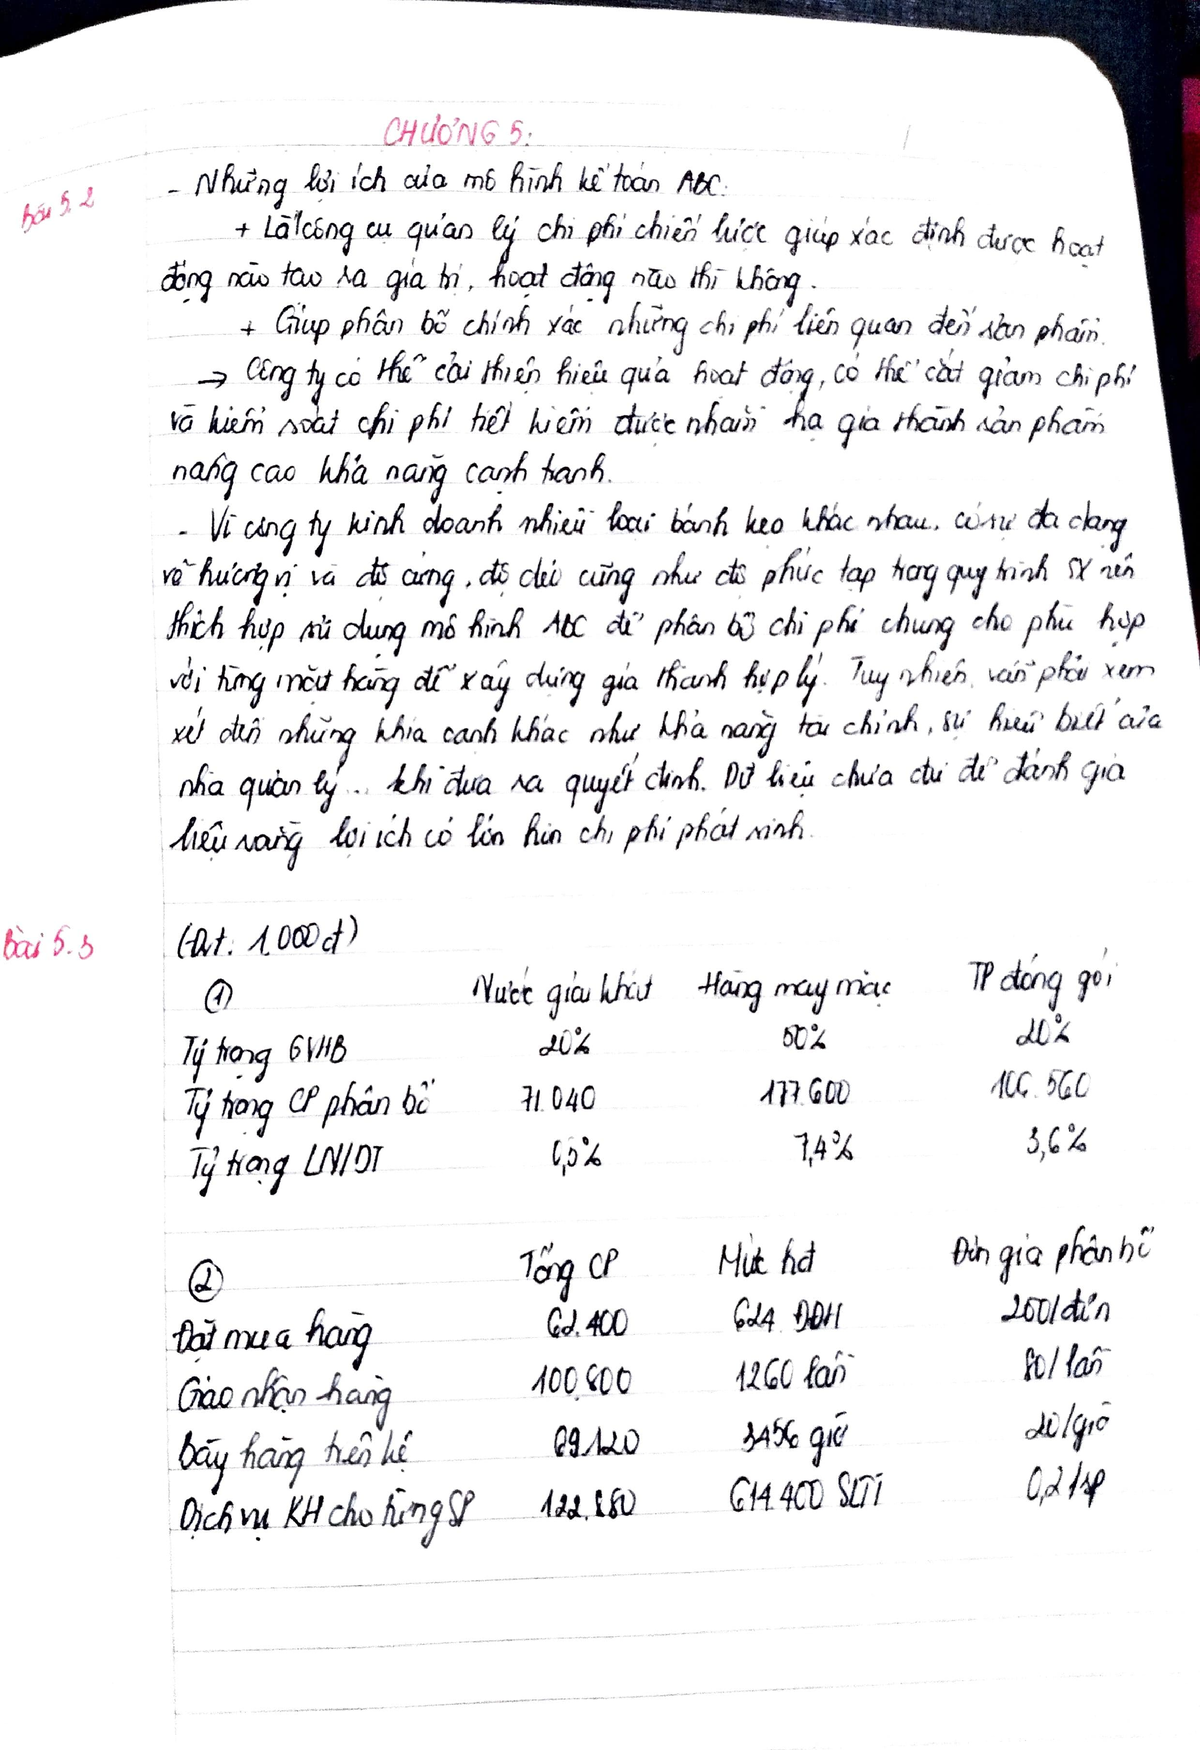 CHƯƠNG 5:
Bài 5.2
- Những lợi ích của mô hình kế toán ABC:
+ Là 1 công cụ quản lý chi phí chiến lược giúp xác định được hoạt
động nào tạo ra giá trị, hoạt động nào thì không.
+ Giúp phân bổ chính xác những chi phí liên quan đến sản phẩm.
→ Công ty có thể cải thiện hiệu quả hoạt động, có thể cắt giảm chi phí
và kiểm soát chi phí tiết kiệm được nhằm hạ giá thành sản phẩm
nâng cao khả năng cạnh tranh.
- Vì công ty kinh doanh nhiều loại bánh kẹo khác nhau, có sự đa dạng
về hương vị và độ cứng, độ dẻo cũng như độ phức tạp trong quy trình SX nên
thích hợp sử dụng mô hình ABC để phân bổ chi phí chung cho phù hợp
với từng mặt hàng để xây dựng giá thành hợp lý. Tuy nhiên, vẫn phải xem
xét đến những khía cạnh khác như khả năng tài chính, sự hiểu biết của
nhà quản lý... khi đưa ra quyết định. Dữ liệu chưa đủ để đánh giá
liệu rằng lợi ích có lớn hơn chi phí phát sinh.
Bài 5.3
(Đvt: 1.000đ)
① Nước giải khát Hàng may mặc TP đóng gói
Tỷ trọng GVHB 20% 50% 20%
Tỷ trọng CP phân bổ 71.040 177.600 106.560
Tỷ trọng LN/DT 6,5% 7,4% 3,6%
② Tổng CP Mức hđ Đơn giá phân bổ
Đặt mua hàng 62.400 624 ĐĐH 200/đơn
Giao nhận hàng 100.800 1260 lần 80/lần
Bày hàng trên kệ 69.120 3456 giờ 20/giờ
Dịch vụ KH cho từng SP 122.880 614.400 SLTT 0,2/sp